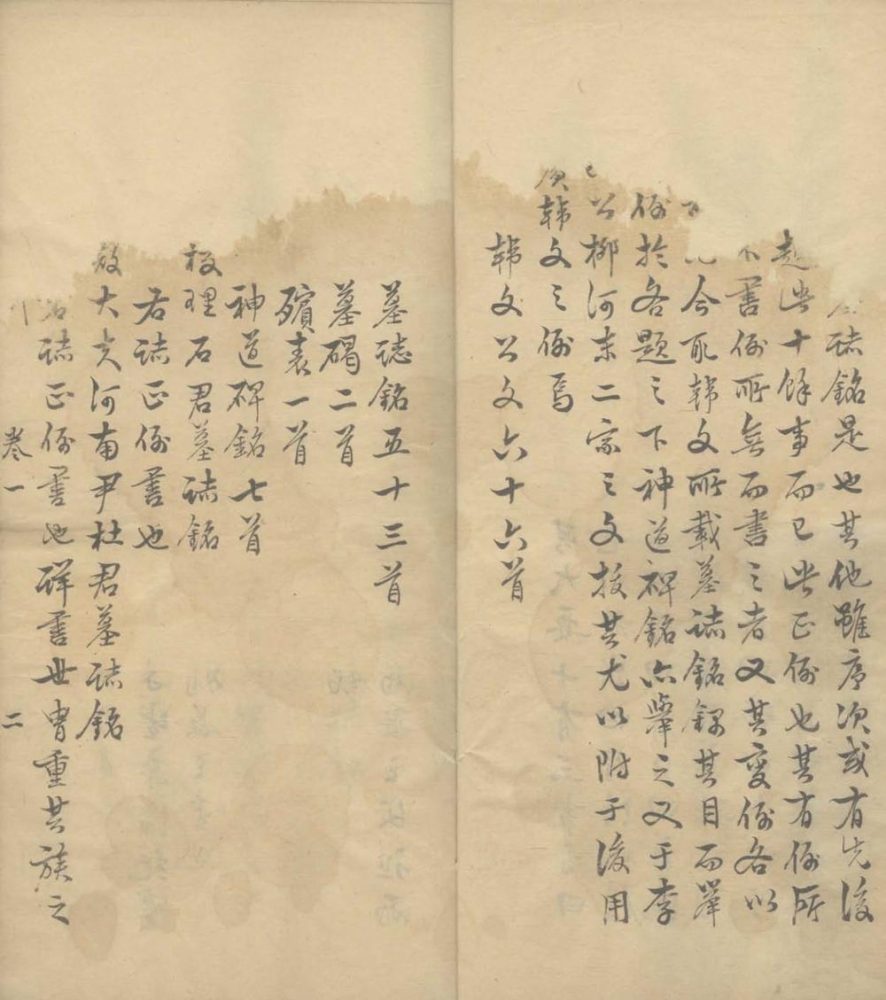 誌銘是也其他雖序次或有先後
超此十餘事而已此正例也其有例所
不書例所無而書之者又其變例各以
今取韓文所載墓誌銘錄其目而舉
例於各題之下神道碑銘亦舉之又于李
公柳河東二家之文拔其尤以附于後用
廣韓文之例焉
韓文公文六十六首
墓誌銘五十三首
墓碣二首
殯表一首
神道碑銘七首
校理石君墓誌銘
右誌正例書也
故大夫河南尹杜君墓誌銘
右誌正例書也詳書世胄重其族之
卷一 二